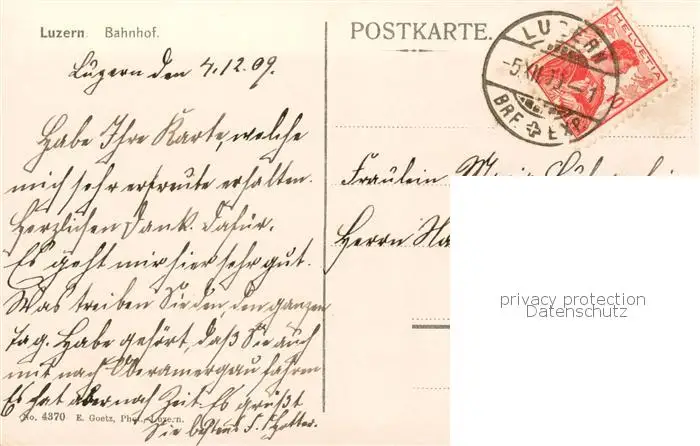 Luzern. Bahnhof.
POSTKARTE.
LUZERN
-5.XII.09.-1
BRF. EXP.
HELVETIA
10
Luzern den 4.12.09.
Habe Ihre Karte, welche
mich sehr erfreute erhalten.
Herzlichen Dank. dafür.
Es geht mir hier sehr gut.
Was treiben Sie den, den ganzen
Tag. Habe gehört, daß Sie auch
mit nach Oberamergau fahren
Es hat aber noch Zeit. Es grüßt
Sie bestens
Fräulein
Herrn
privacy protection
Datenschutz
No. 4370 E. Goetz, Phot., Luzern.